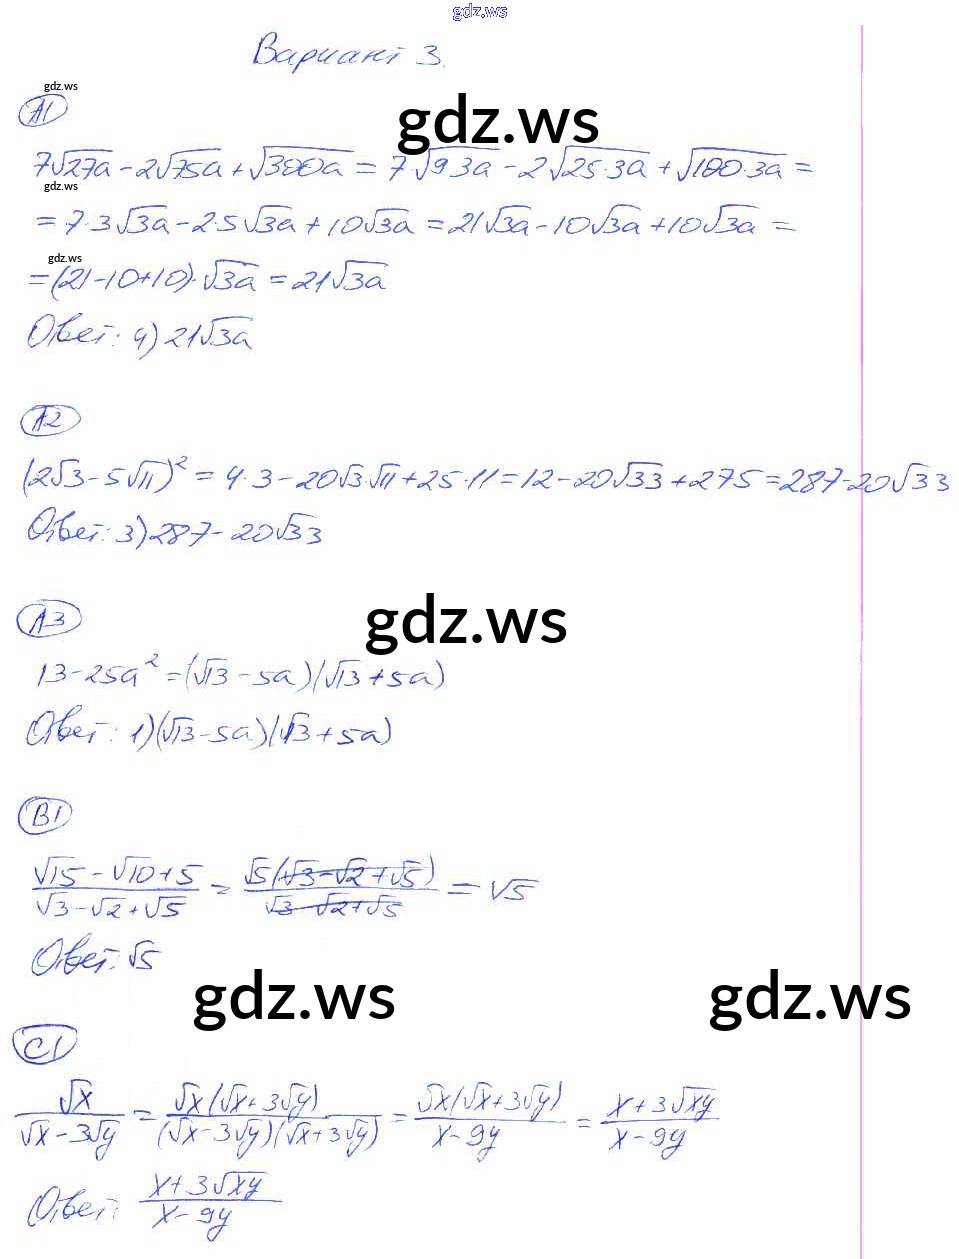 gdz.ws
Вариант 3.
gdz.ws
А1
gdz.ws
7√27a - 2√75a + √300a = 7·√9·3a - 2√25·3a + √100·3a =
gdz.ws
= 7·3√3a - 2·5√3a + 10√3a = 21√3a - 10√3a + 10√3a =
gdz.ws
= (21-10+10)·√3a = 21√3a
Ответ: 4) 21√3a
А2
(2√3 - 5√11)² = 4·3 - 20√3·√11 + 25·11 = 12 - 20√33 + 275 = 287 - 20√33
Ответ: 3) 287 - 20√33
А3
gdz.ws
13 - 25a² = (√13 - 5a)(√13 + 5a)
Ответ: 1) (√13 - 5a)(√13 + 5a)
В1
(√15 - √10 + 5)/(√3 - √2 + √5) = (√5(√3 - √2 + √5))/(√3 - √2 + √5) = √5
Ответ: √5
gdz.ws gdz.ws
С1
√x/(√x - 3√y) = (√x(√x + 3√y))/((√x - 3√y)(√x + 3√y)) = (√x(√x + 3√y))/(x - 9y) = (x + 3√xy)/(x - 9y)
Ответ: (x + 3√xy)/(x - 9y)